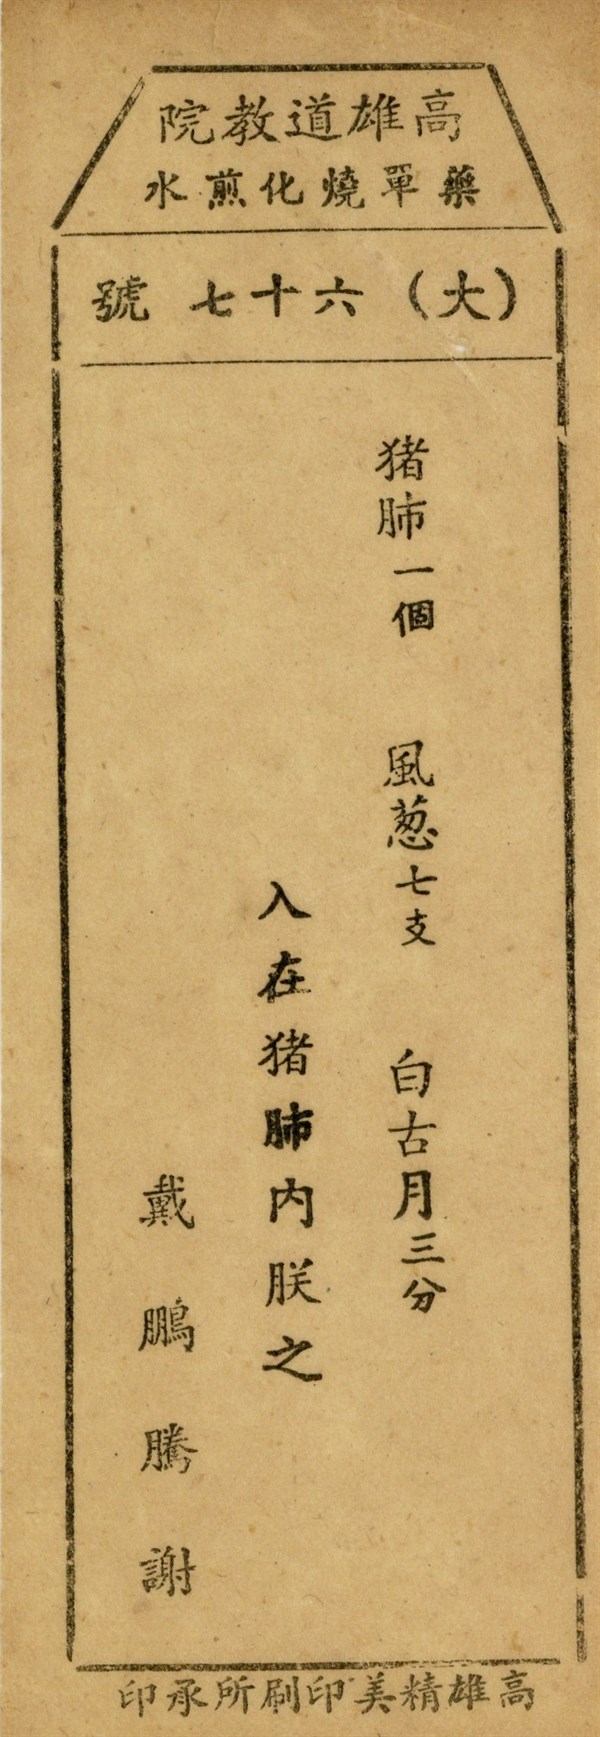 高雄道教院
藥單燒化煎水
（大）六十七 號
猪肺一個 風葱七支 白古月三分
入在猪肺内朕之
戴鵬騰謝
高雄精美印刷所承印